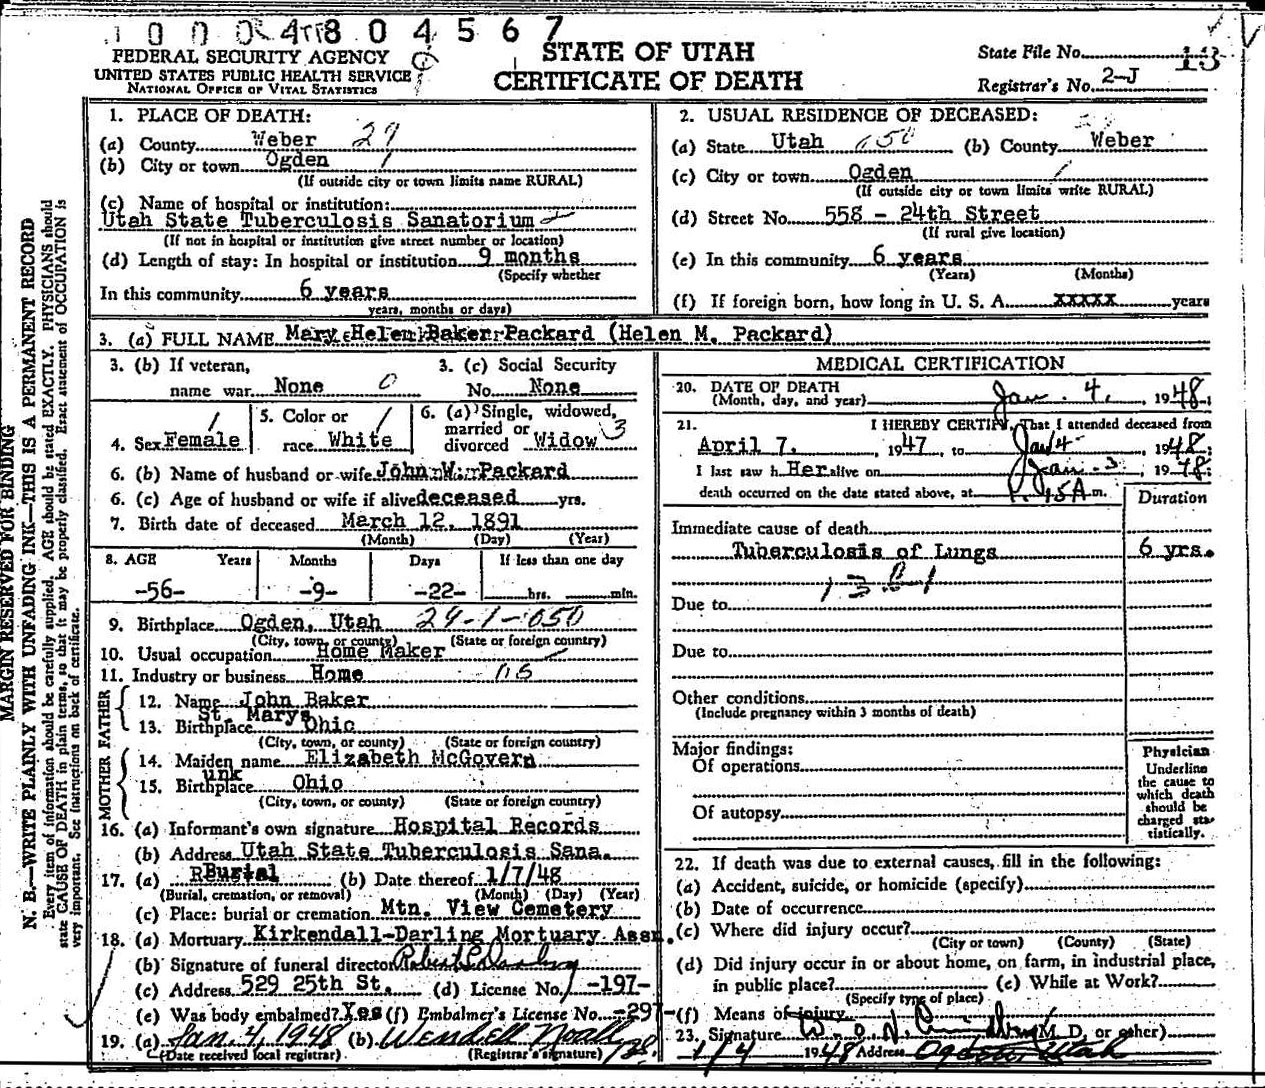 1 0 0 0 4 8 0 4 5 6 7
FEDERAL SECURITY AGENCY
UNITED STATES PUBLIC HEALTH SERVICE
NATIONAL OFFICE OF VITAL STATISTICS
STATE OF UTAH
CERTIFICATE OF DEATH
State File No. 13
Registrar's No. 2-J
MARGIN RESERVED FOR BINDING
N. B.—WRITE PLAINLY WITH UNFADING INK—THIS IS A PERMANENT RECORD
Every item of information should be carefully supplied. AGE should be stated EXACTLY. PHYSICIANS should
state CAUSE OF DEATH in plain terms, so that it may be properly classified. Exact statement of OCCUPATION is
very important. See instructions on back of certificate.
1. PLACE OF DEATH:
(a) County Weber 29
(b) City or town Ogden 1
(If outside city or town limits name RURAL)
(c) Name of hospital or institution:
Utah State Tuberculosis Sanatorium
(If not in hospital or institution give street number or location)
(d) Length of stay: In hospital or institution 9 months
(Specify whether
In this community 6 years
years, months or days)
2. USUAL RESIDENCE OF DECEASED:
(a) State Utah 650 (b) County Weber
(c) City or town Ogden 1
(If outside city or town limits write RURAL)
(d) Street No. 558 - 24th Street
(If rural give location)
(e) In this community 6 years
(Years) (Months)
(f) If foreign born, how long in U. S. A. XXXXX years
3. (a) FULL NAME Mary Helen Baker Packard (Helen M. Packard)
3. (b) If veteran, 3. (c) Social Security
name war None 0 No. None
4. Sex Female 1 5. Color or race White 1 6. (a) Single, widowed, married or divorced Widow 3
6. (b) Name of husband or wife John W. Packard
6. (c) Age of husband or wife if alive deceased yrs.
7. Birth date of deceased March 12, 1891
(Month) (Day) (Year)
8. AGE Years Months Days If less than one day
-56- -9- -22- hrs. min.
9. Birthplace Ogden, Utah 29-1-650
(City, town, or county) (State or foreign country)
10. Usual occupation Home Maker
11. Industry or business Home
FATHER
12. Name John Baker
13. Birthplace St. Marys Ohio
(City, town, or county) (State or foreign country)
MOTHER
14. Maiden name Elizabeth McGovern
15. Birthplace unk Ohio
(City, town, or county) (State or foreign country)
16. (a) Informant's own signature Hospital Records
(b) Address Utah State Tuberculosis Sana.
17. (a) Burial (b) Date thereof 1/7/48
(Burial, cremation, or removal) (Month) (Day) (Year)
(c) Place: burial or cremation Mtn. View Cemetery
18. (a) Mortuary Kirkendall-Darling Mortuary Assn.
(b) Signature of funeral director Robert L Darling
(c) Address 529 25th St. (d) License No. -197-
(e) Was body embalmed? Yes (f) Embalmer's License No. -297-
19. (a) Jan. 4, 1948 (b) Wendell Noall
(Date received local registrar) (Registrar's signature)
MEDICAL CERTIFICATION
20. DATE OF DEATH
(Month, day, and year) Jan. 4, 1948.
21. I HEREBY CERTIFY, That I attended deceased from
April 7, 1947, to Jan 4 1948.
I last saw h Her alive on Jan. 3 1948;
death occurred on the date stated above, at 15 A m.
Duration
Immediate cause of death
Tuberculosis of Lungs 6 yrs.
Due to
Due to
Other conditions
(Include pregnancy within 3 months of death)
Major findings:
Of operations
Of autopsy
Physician
Underline
the cause to
which death
should be
charged sta-
tistically.
22. If death was due to external causes, fill in the following:
(a) Accident, suicide, or homicide (specify)
(b) Date of occurrence
(c) Where did injury occur?
(City or town) (County) (State)
(d) Did injury occur in or about home, on farm, in industrial place,
in public place? (e) While at Work?
(Specify type of place)
(f) Means of injury
23. Signature (M. D. or other)
1/4 1948 Address Ogden, Utah